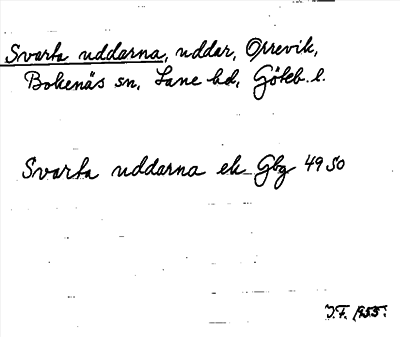 Svarta uddarna, uddar, Orrevik,
Bokenäs sn, Lane hd, Göteb. l.
Svarta uddarna ek Gbg 49 SO
J.F. 1955.